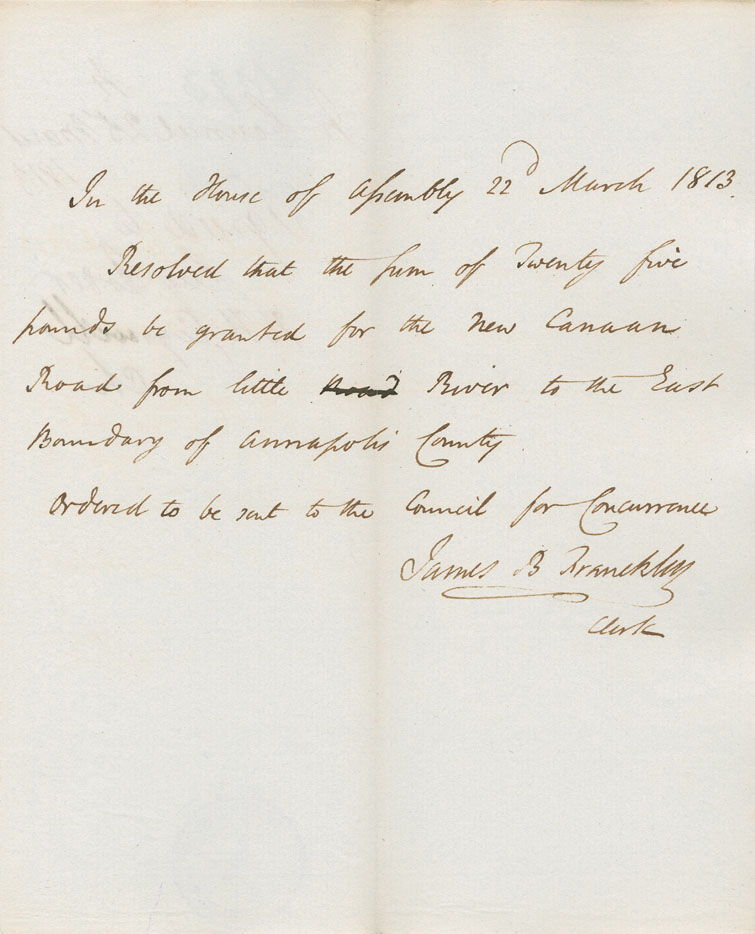 In the House of Assembly 22d March 1813.
Resolved that the sum of Twenty five
pounds be granted for the New Canaan
Road from little Road River to the East
Boundary of Annapolis County
Ordered to be sent to the Council for Concurrence
James B Franckling
Clerk